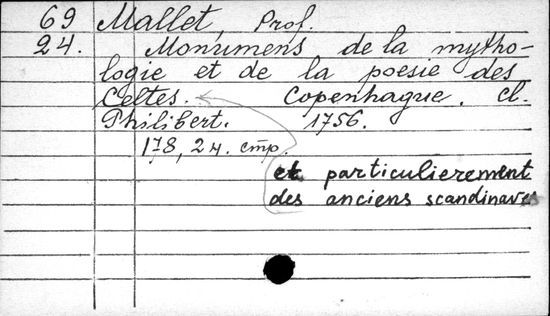 69 Mallet, Prof.
24. Monumens de la mytho-
logie et de la poesie des
Celtes. Copenhague. cl.
Philibert. 1756.
178, 24. cmp.
et particulierement
des anciens scandinaves